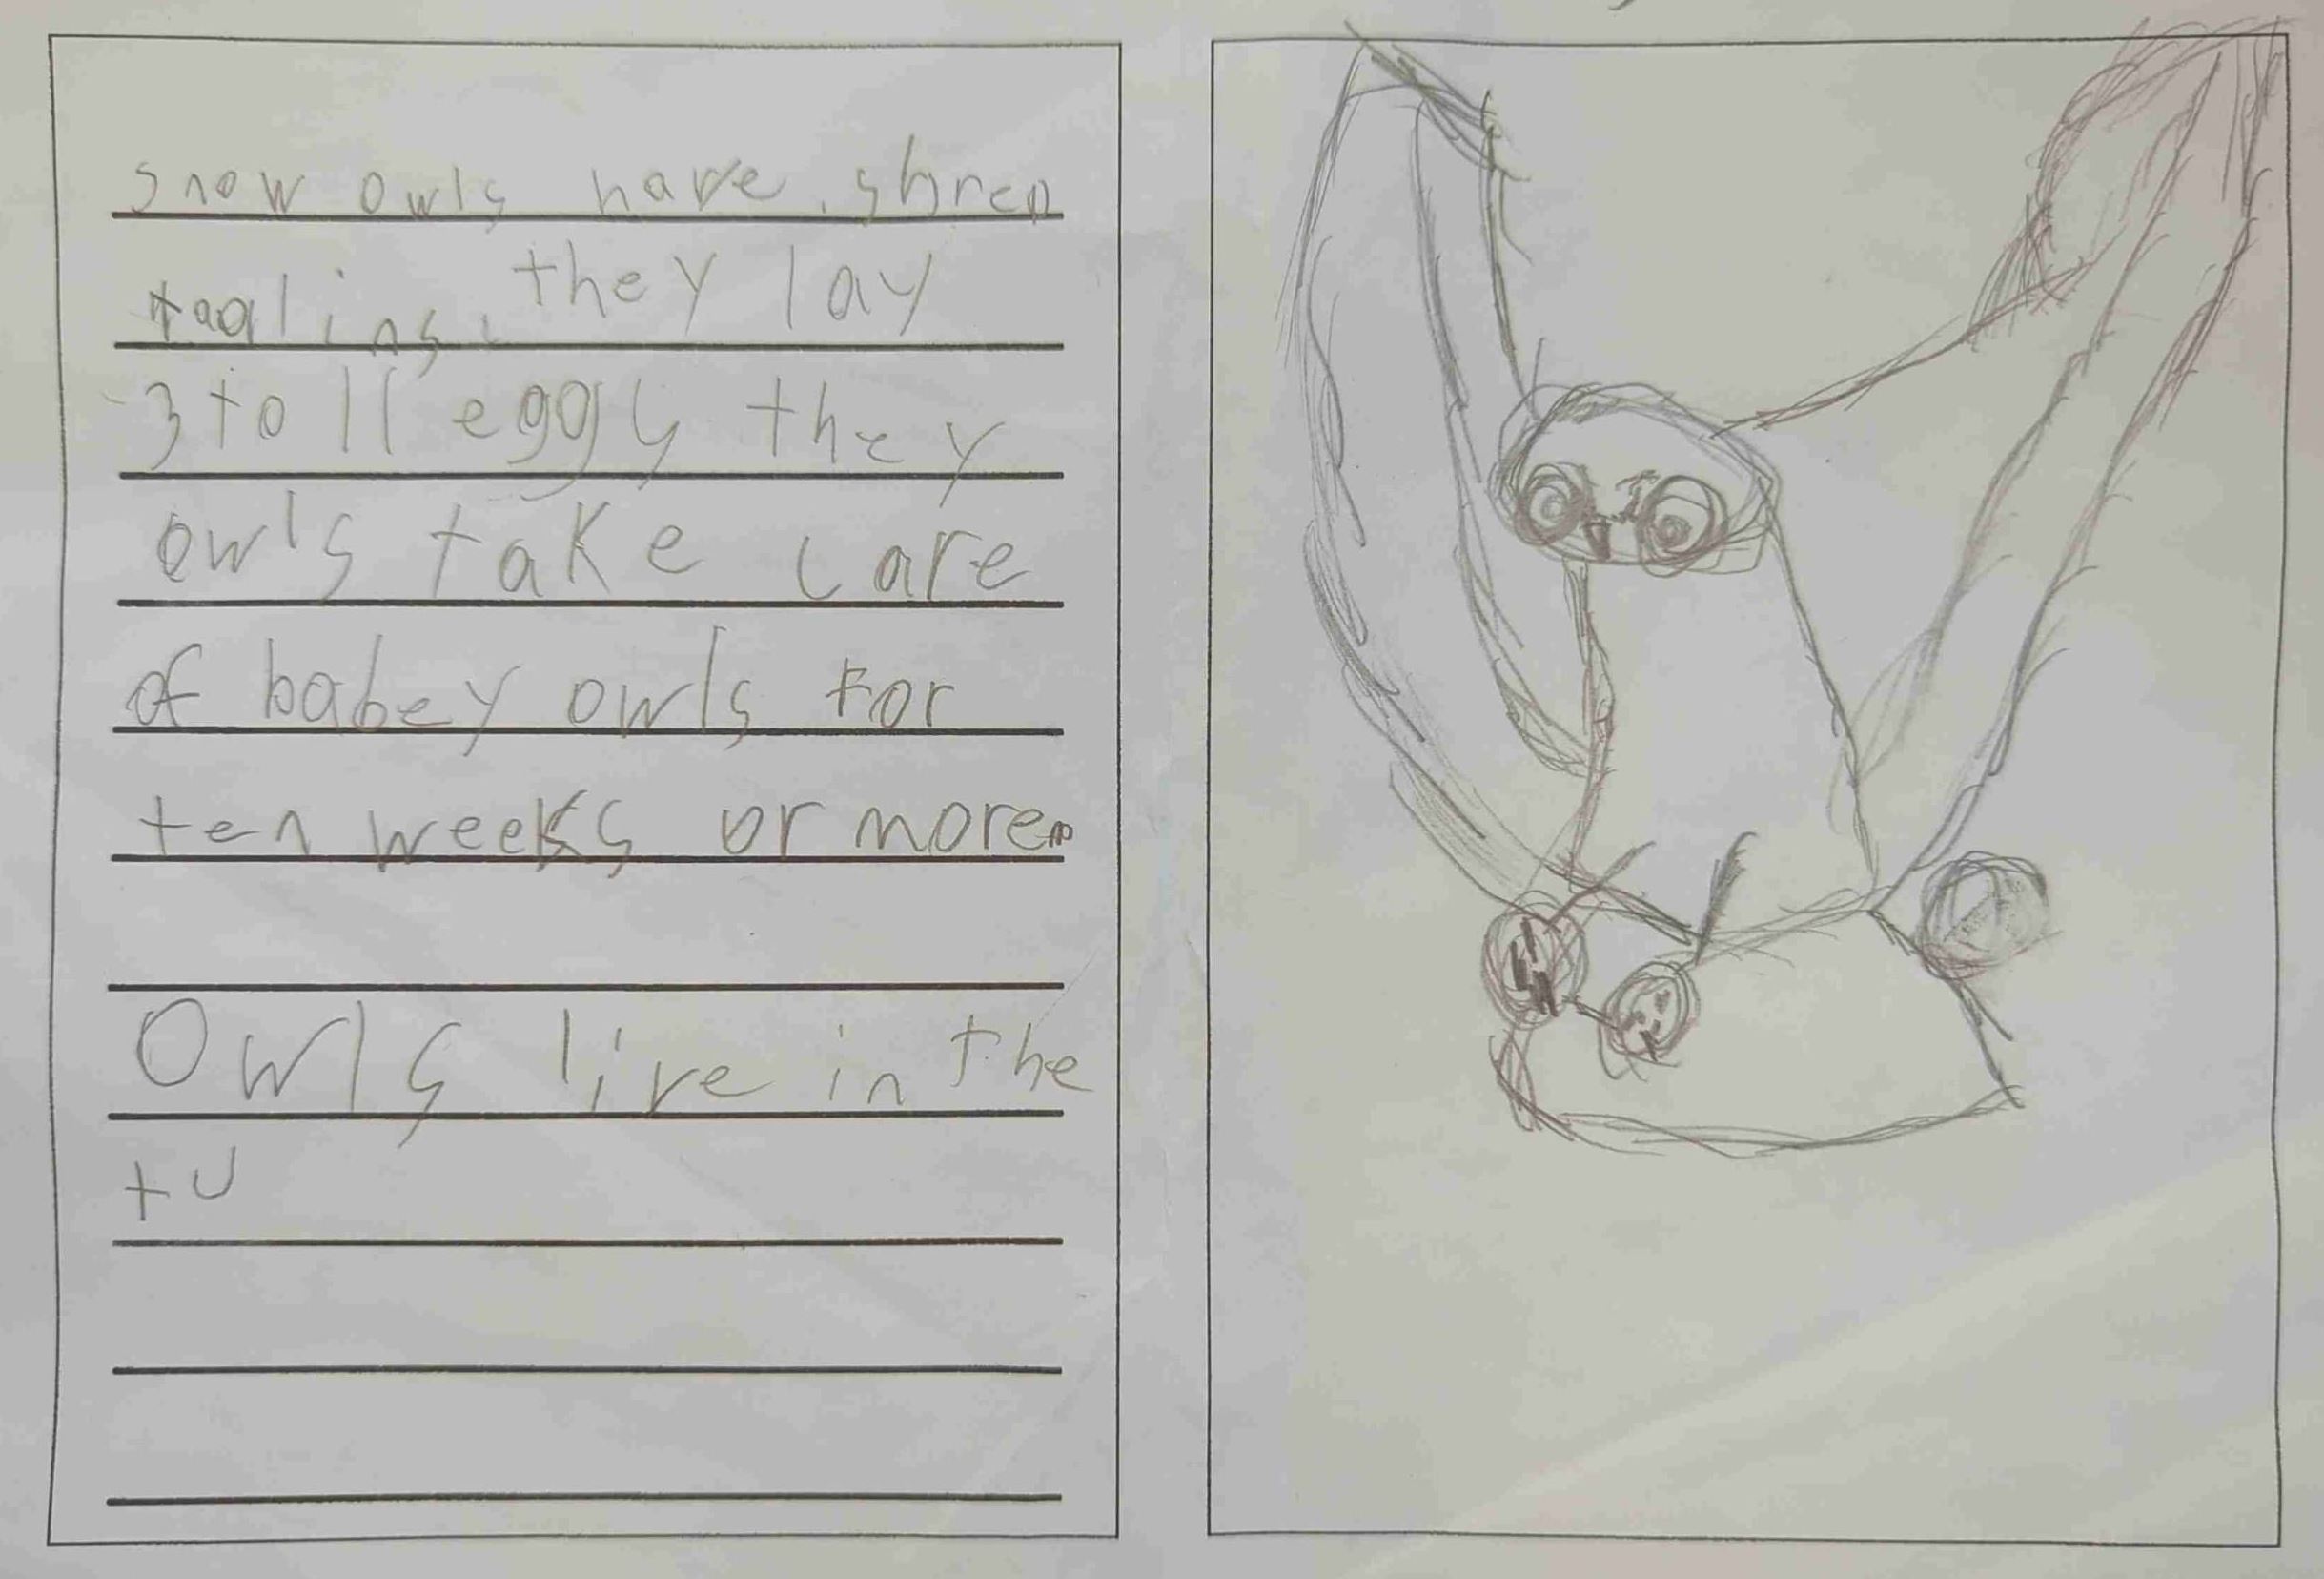 snow owls have shren
taalins. they lay
3 to 11 eggs they
owls take care
of babey owls for
ten weeks or more.
Owls live in the
tu